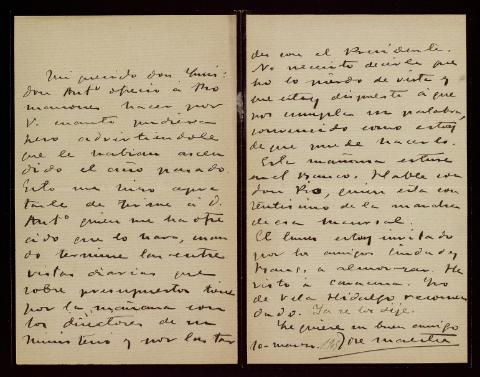 Mi querido don Luis:
don Antº ofreció a Ro
manones hacer por
V. cuanto pudiera
pero advirtiéndole
que le habian ascen
dido el año pasado.
Esto me hizo apre
tarle de firme á D.
Antº quien me ha ofre
cido que lo hará, cuan
do termine las entre
vistas diarias que
sobre presupuestos tiene
por la mañana con
los directores de su
Ministerio y por las tar
des con el Presidente.
No necesito decirle que
no lo pierdo de vista y
que estoy dispuesto á que
nos cumplan su palabra,
convencido como estoy
de que puede hacerlo.
Esta mañana estuve
en el Banco. Hablé con
don Pío, quien está con
tentísimo de la marcha
de esa sucursal.
El lunes estoy invitado
por los amigos Lindad y
Franco, a almorzar. He
visto á
de Vela Hidalgo recomen
dado. Ya se los dije.
Le quiere su buen amigo
10-marzo. José Maestre